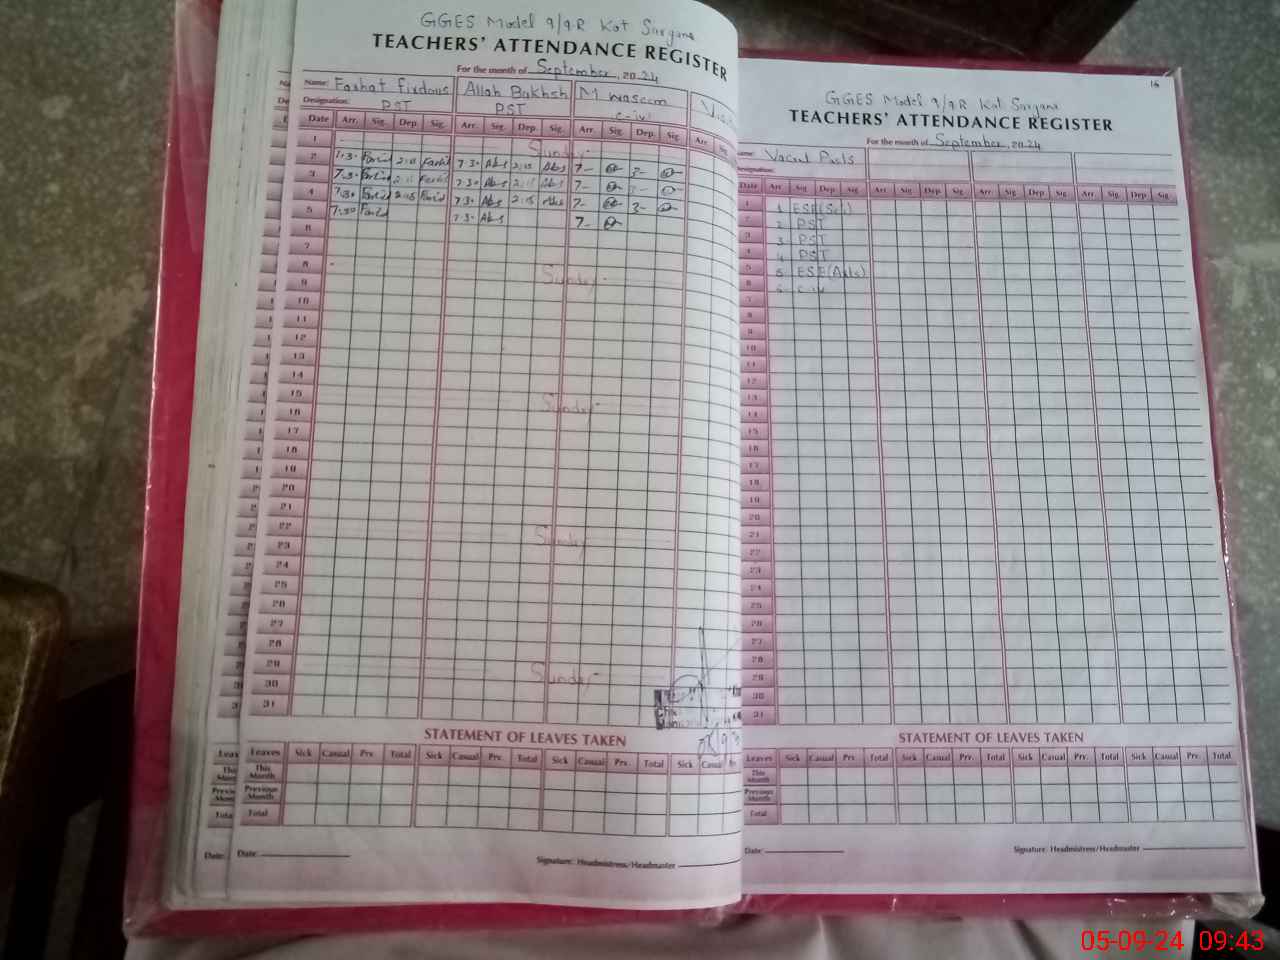 GGES Model 9/9R Kot Sargana
TEACHERS' ATTENDANCE REGISTER
For the month of September, 2024
Name: Farhat Firdous Allah Bakhsh M waseem
Designation: PST PST C-iv
Date Arr. Sig. Dep. Sig. Arr. Sig. Dep. Sig. Arr. Sig. Dep. Sig. Arr. Sig.
1 Sunday
2 7.30 Farhd 2:15 Farhd 7.30 Abs 2:15 Abs 7- 3-
3 7.30 Farhd 2:15 Farhd 7.30 Abs 2:15 Abs 7- 3-
4 7.30 Farhd 2:15 Farhd 7.30 Abs 2:15 Abs 7- 3-
5 7.30 Farhd 7.30 Abs 7-
6
7
8 Sunday
9
10
11
12
13
14
15 Sunday
16
17
18
19
20
21
22 Sunday
23
24
25
26
27
28
29 Sunday
30
31
STATEMENT OF LEAVES TAKEN
Leaves Sick Casual Prv. Total Sick Casual Prv. Total Sick Casual Prv. Total Sick Casual
This Month
Previous Month
Total
Date:
Signature: Headmistress/Headmaster
16
GGES Model 9/9R Kot Sargana
TEACHERS' ATTENDANCE REGISTER
For the month of September, 2024
Vacant Posts
Designation:
Date Arr. Sig. Dep. Sig. Arr. Sig. Dep. Sig. Arr. Sig. Dep. Sig. Arr. Sig. Dep. Sig.
1 1 ESE(Sci)
2 2 PST
3 3 PST
4 4 PST
5 5 ESE(Arts)
6 6 C-iv
7
8
9
10
11
12
13
14
15
16
17
18
19
20
21
22
23
24
25
26
27
28
29
30
31
STATEMENT OF LEAVES TAKEN
Leaves Sick Casual Prv. Total Sick Casual Prv. Total Sick Casual Prv. Total Sick Casual Prv. Total
This Month
Previous Month
Total
Date:
Signature: Headmistress/Headmaster
05-09-24 09:43